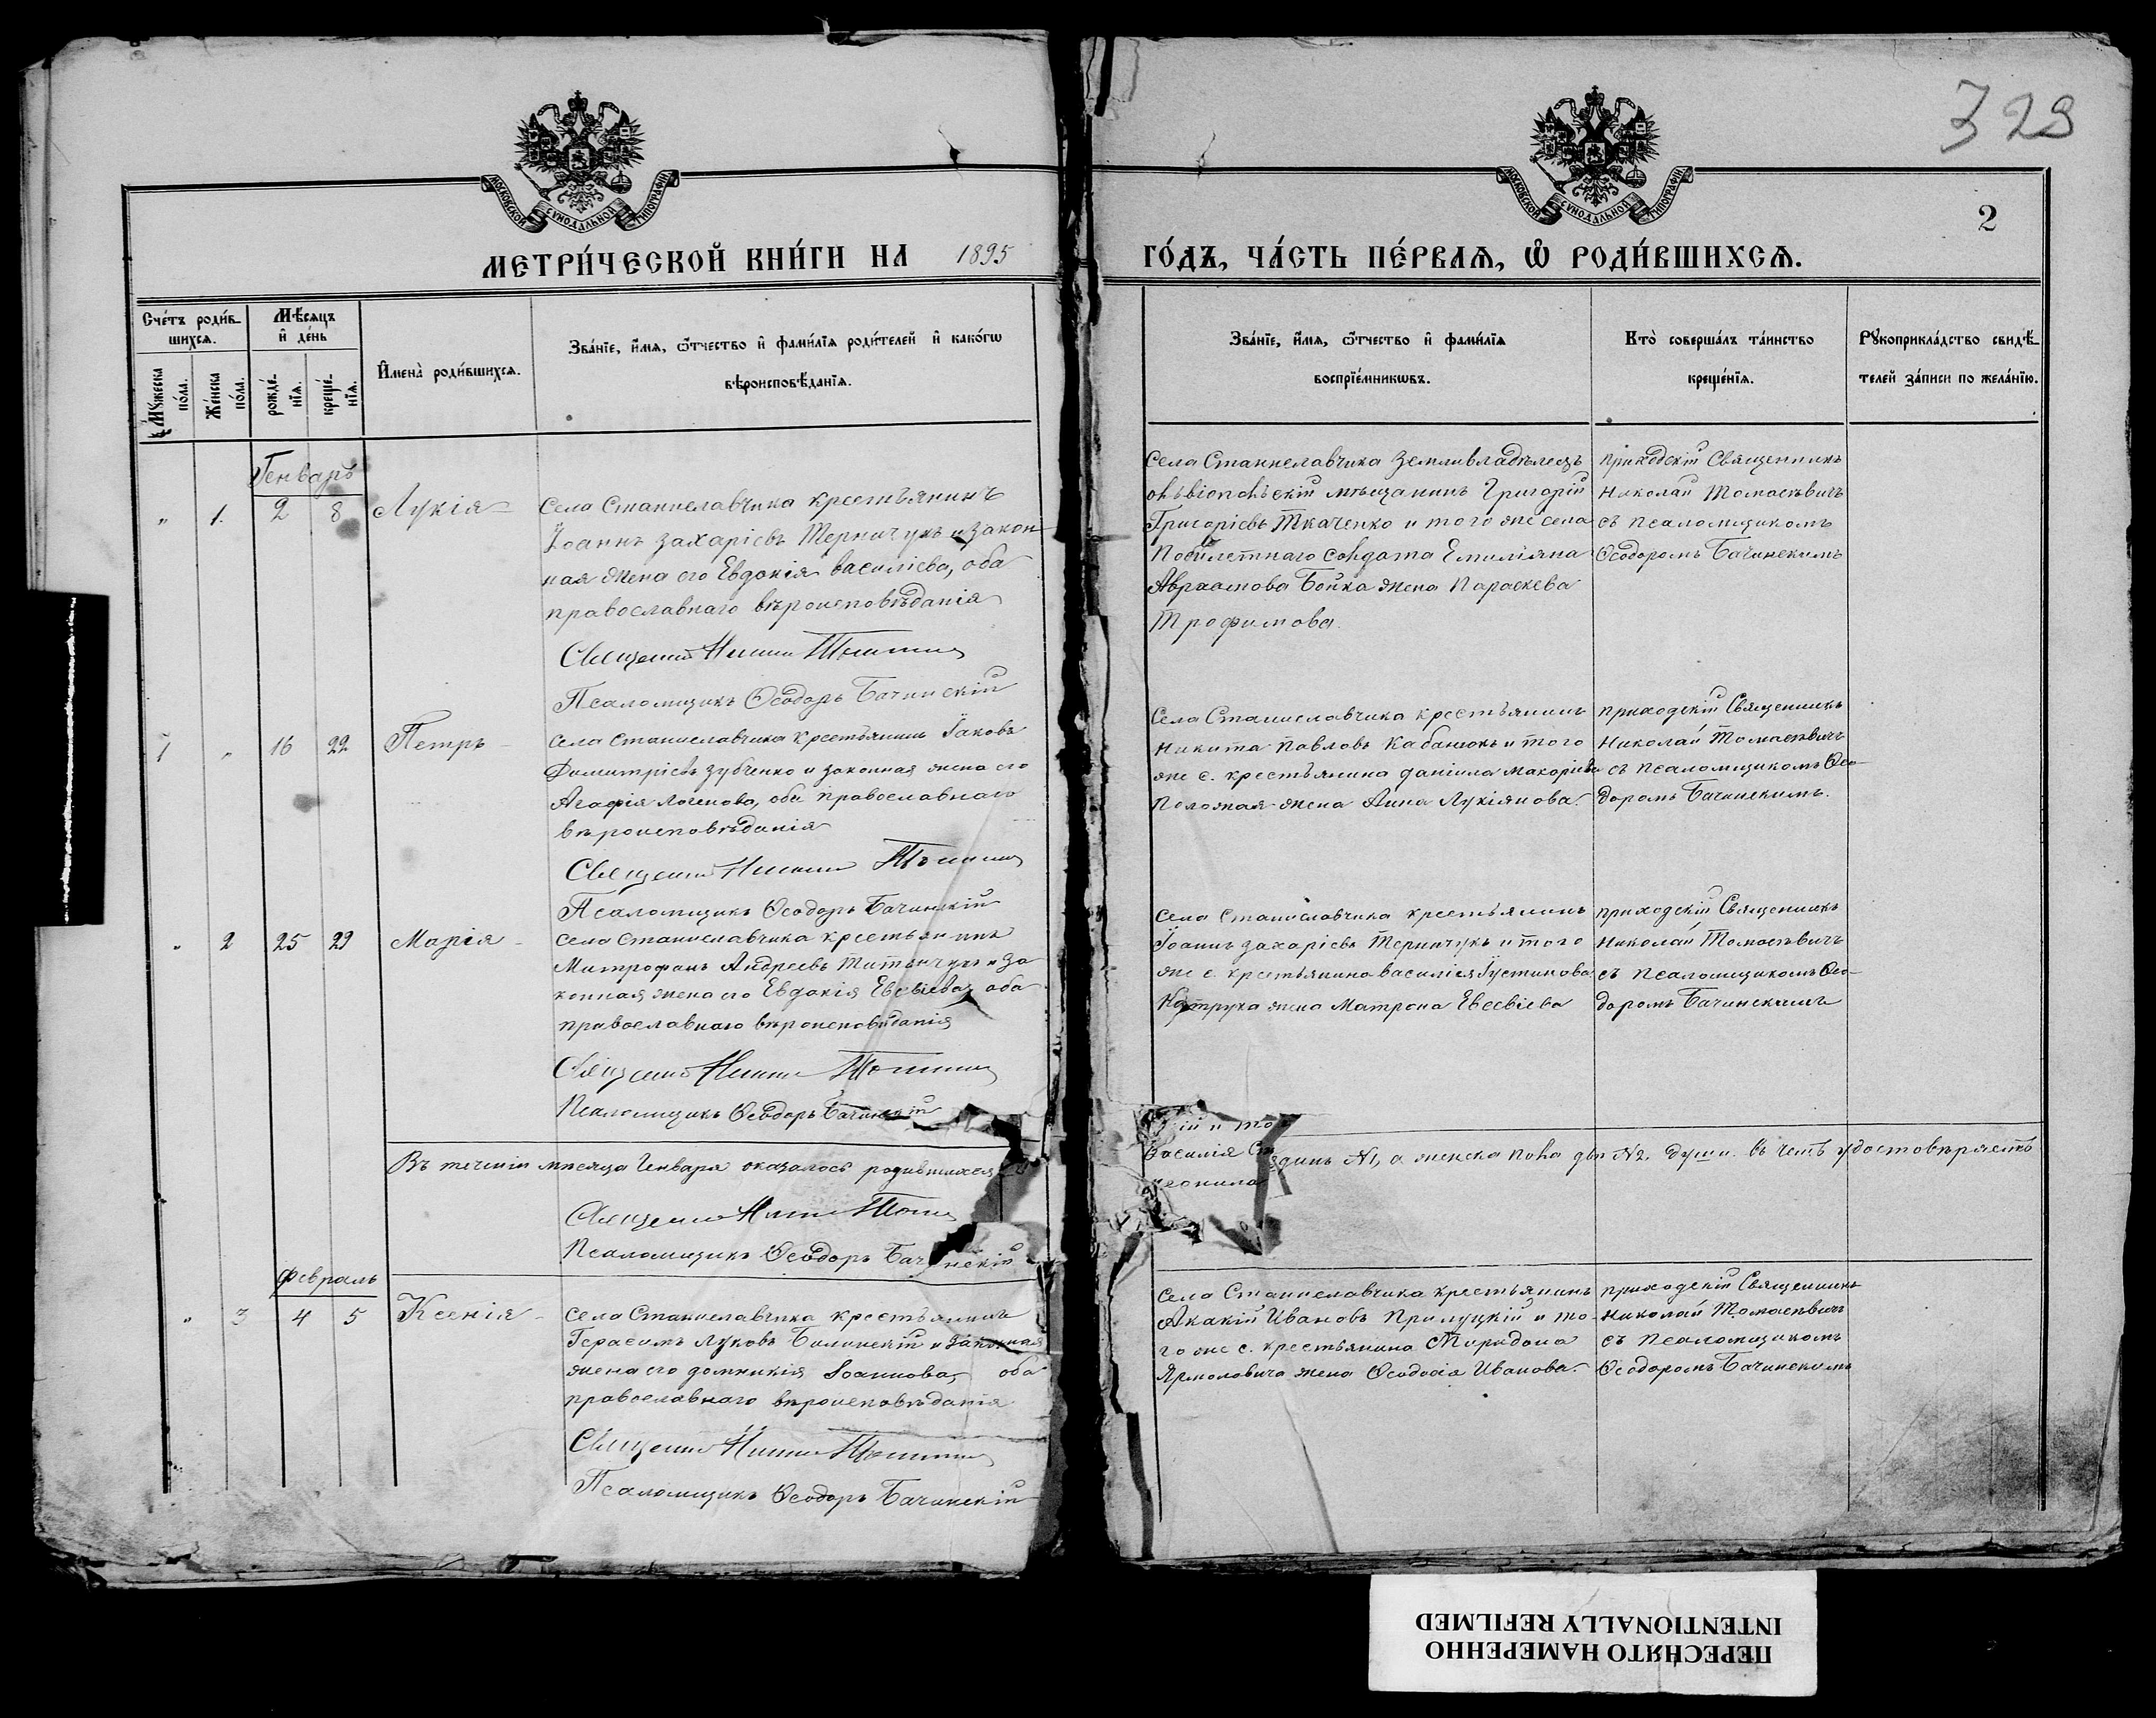 329
МОСКОВСКОЙ СУНОДАЛЬНОЙ ТИПОГРАФІИ
МОСКОВСКОЙ СУНОДАЛЬНОЙ ТИПОГРАФІИ
2
МЕТРИ́ЧЕСКОЙ КНИ́ГИ НА 1895
ГО́ДЪ, ЧА́СТЬ ПЕ́РВАѦ, Ѽ РОДИ́ВШИХСѦ.
Сче́тъ роди́в-
шихсѧ.
Мꙋ́жеска по́ла.
Же́нска по́ла.
Мѣ́сяцъ и҆ де́нь
рожде́нїѧ.
креще́нїѧ.
И҆мена̀ роди́вшихсѧ.
Зва́нїе, и҆́мѧ, ѻ҆́тчество и҆ фами́лїѧ роди́телей и҆ како́гѡ
вѣроисповѣ́данїѧ.
Зва́нїе, и҆́мѧ, ѻ҆́тчество и҆ фами́лїѧ
воспрїе́мникѡвъ.
Кто̀ соверша́лъ та́инство
креще́нїѧ.
Рꙋкоприкла́дство свидѣ́-
телей за́писи по жела́нїю.
Генварь
" 1. 2 8 Лукія
Села Станиславчика крестьянинъ
Іоаннъ Захаріевъ Терничукъ и закон
ная жена его Евдокія Василіева, оба
православнаго вѣроисповѣданія
Священникъ Николай
Псаломщикъ Ѳеодоръ Бачинскій
Села Станиславчика землевладѣлецъ
мѣщанинъ Григорій
Григоріевъ Ткаченко и того же села
солдата Емиліяна
Авраамова Бойка жена Параскева
Трофимова.
приходскій Священникъ
Николай Томасевичъ
съ псаломщикомъ
Ѳеодоромъ Бачинскимъ
1 " 16 22 Петръ
Села Станиславчика крестьянинъ Іаковъ
Димитріевъ Зубченко и законная жена его
Агафія Логинова, оба православнаго
вѣроисповѣданія
Священникъ Николай
Псаломщикъ Ѳеодоръ Бачинскій
Села Станиславчика крестьянинъ
Никита Павловъ Кабанюкъ и того
же с. крестьянина Даніила Макаріева
жена Анна Лукіянова.
приходскій Священникъ
Николай Томасевичъ
съ псаломщикомъ Ѳео-
доромъ Бачинскимъ.
" 2 25 29 Марія
Села Станиславчика крестьянинъ
Митрофанъ Андреевъ Титончукъ и за
конная жена его Евдокія Евсевіева, оба
православнаго вѣроисповѣданія
Священникъ Николай
Псаломщикъ Ѳеодоръ Бачинскій
Села Станиславчика крестьянинъ
Іоаннъ Захаріевъ Терничукъ и того
же с. крестьянина Василія Іустинова
Катрука жена Матрона Евсевіева
приходскій Священникъ
Николай Томасевичъ
съ псаломщикомъ Ѳео-
доромъ Бачинскимъ
Въ теченіи мѣсяца Генваря оказалось родившихся
единъ №1, а женска пола двѣ №2. души. въ чемъ удостовѣряетъ
кій и то
Василія
Священникъ Николай
Псаломщикъ Ѳеодоръ Бачинскій
Февраль
" 3 4 5 Ксенія
Села Станиславчика крестьянинъ
Герасимъ Луковъ Билинскій и законная
жена его Домникія Іоаннова, оба
православнаго вѣроисповѣданія
Священникъ Николай
Псаломщикъ Ѳеодоръ Бачинскій
Села Станиславчика крестьянинъ
Акакій Ивановъ Прилуцкій и то-
го же с. крестьянина Спиридона
Ярмоловича жена Ѳеодосія Иванова.
приходскій Священникъ
Николай Томасевичъ
съ псаломщикомъ
Ѳеодоромъ Бачинскимъ
ПЕРЕСНЯТО НАМЕРЕННО
INTENTIONALLY REFILMED